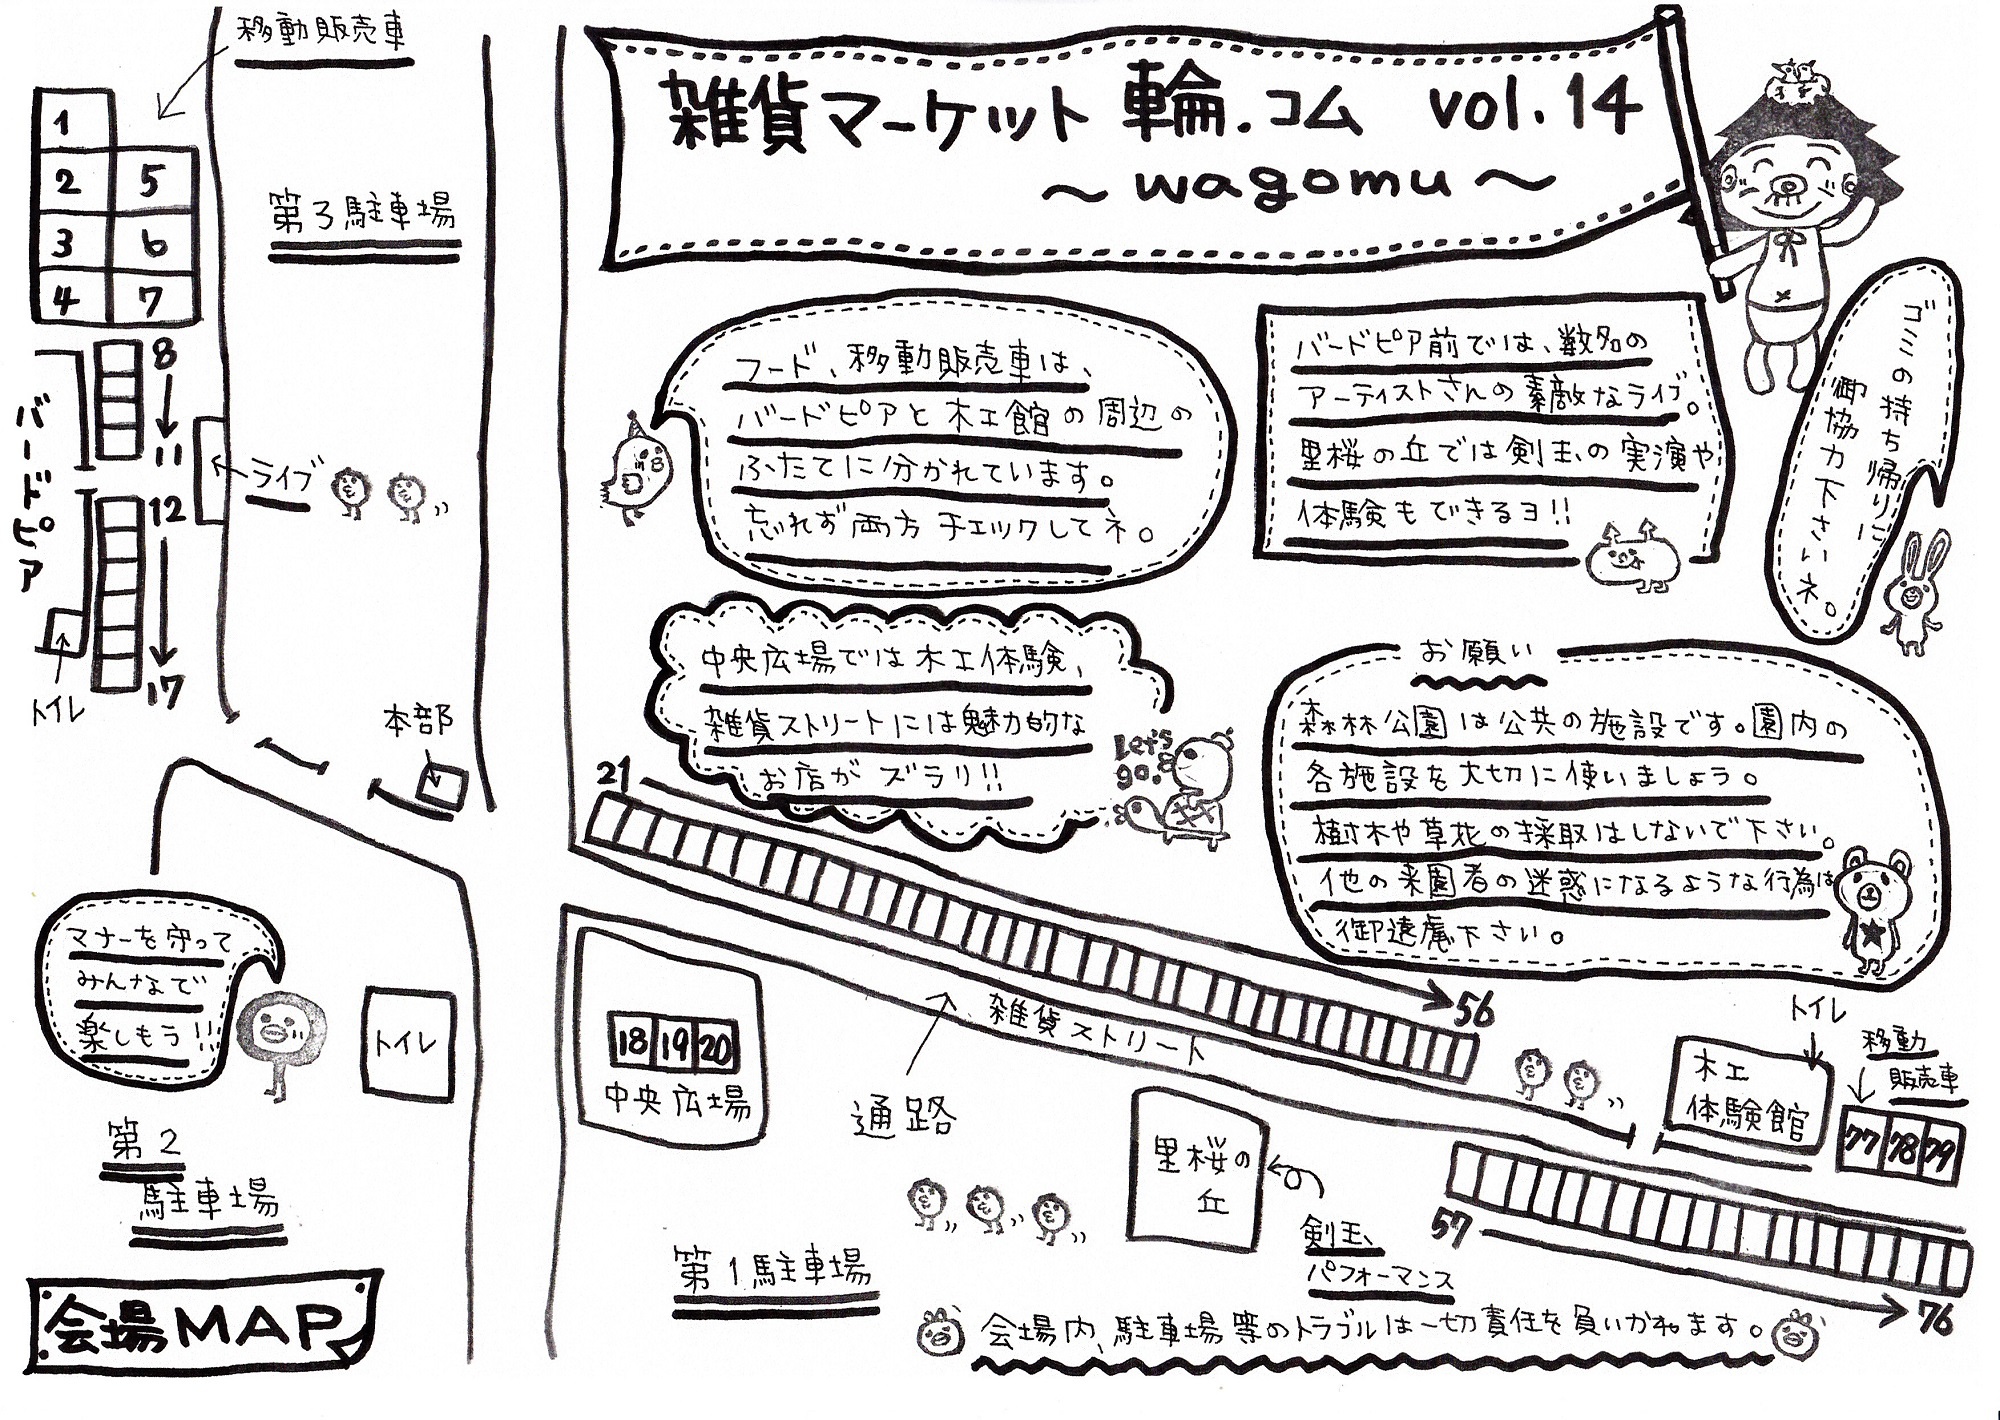 雑貨マーケット 輪.コム vol.14
～wagomu～
移動販売車
1
2
3
4
5
6
7
第3駐車場
8
11
12
17
バードピア
ライブ
トイレ
本部
フード、移動販売車は、
バードピアと木工館の周辺の
ふたてに分かれています。
忘れず両方チェックしてネ。
バードピア前では、数名の
アーティストさんの素敵なライブ。
里桜の丘では剣玉の実演や
体験もできるヨ!!
ゴミの持ち帰りに
御協力下さいネ。
中央広場では木工体験、
雑貨ストリートには魅力的な
お店がズラリ!!
Let's
go.
お願い
森林公園は公共の施設です。園内の
各施設を大切に使いましょう。
樹木や草花の採取はしないで下さい。
他の来園者の迷惑になるような行為は
御遠慮下さい。
21
56
雑貨ストリート
通路
18 19 20
中央広場
マナーを守って
みんなで
楽しもう!!
トイレ
第2
駐車場
第1駐車場
里桜の
丘
剣玉
パフォーマンス
トイレ
木工
体験館
移動
販売車
77 78 79
57
76
会場MAP
会場内、駐車場等のトラブルは一切責任を負いかねます。